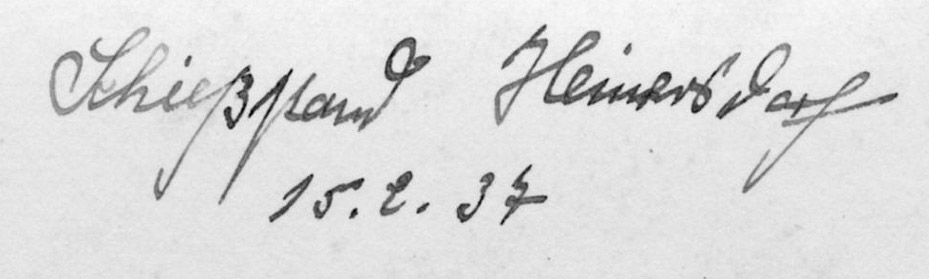 Schießstand Heinersdorf
15.2.37